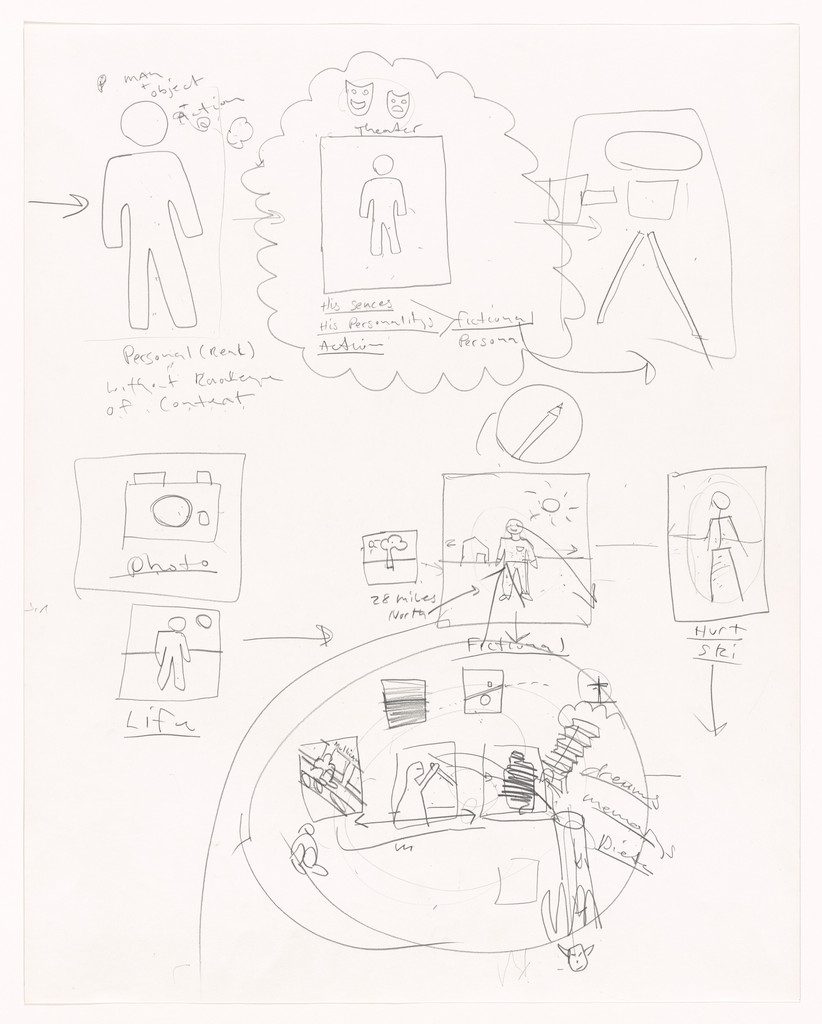 man
+ object
+ Action
Theater
His sences
His Personalitys
Action
fictional
Persona
Personal (Real)
without Knowledge
of Content
Photo
28 miles
North
Fictional
Hurt
Ski
Life
dreams